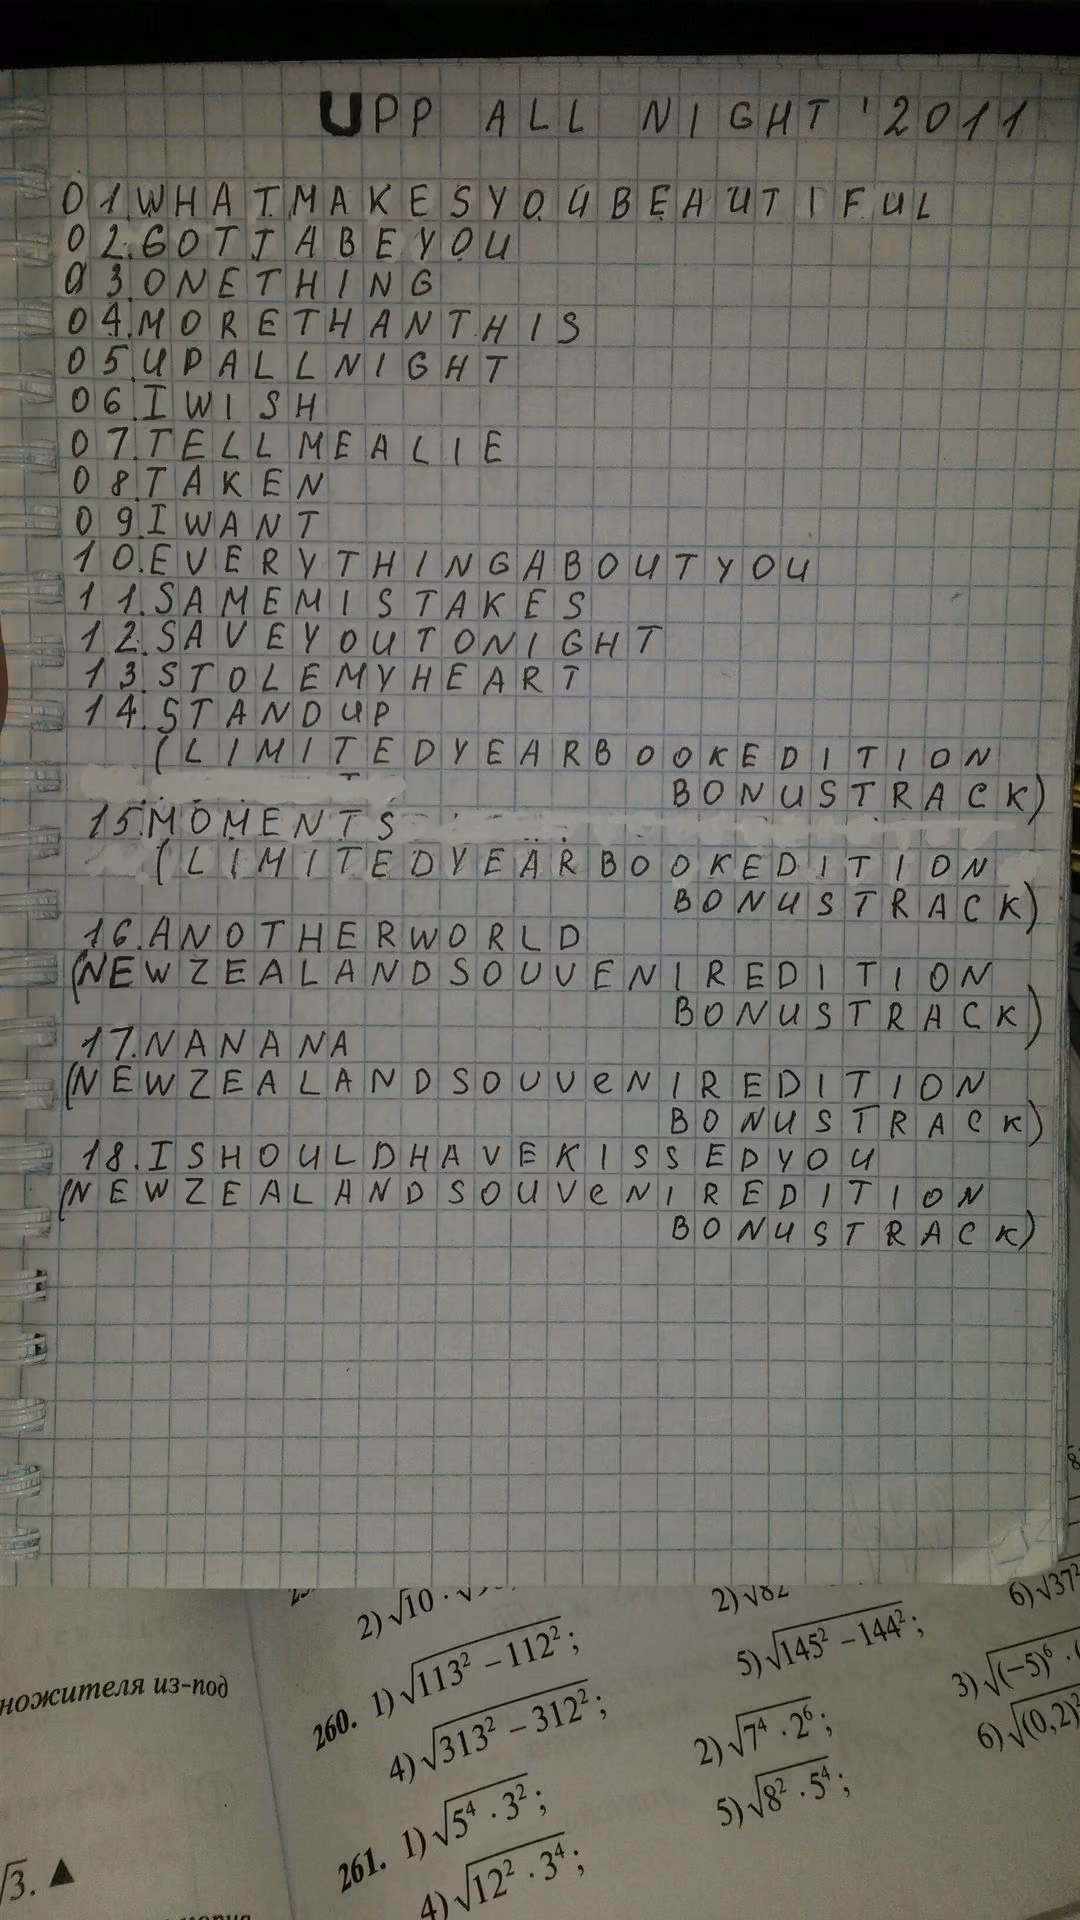 UPP ALL NIGHT '2011
01.WHATMAKESYOUBEAUTIFUL
02.GOTTABEYOU
03.ONETHING
04.MORETHANTHIS
05.UPALLNIGHT
06.IWISH
07.TELLMEALIE
08.TAKEN
09.IWANT
10.EVERYTHINGABOUTYOU
11.SAMEMISTAKES
12.SAVEYOUTONIGHT
13.STOLEMYHEART
14.STANDUP
(LIMITEDYEARBOOKEDITION
BONUSTRACK)
15.MOMENTS
(LIMITEDYEARBOOKEDITION
BONUSTRACK)
16.ANOTHERWORLD
(NEWZEALANDSOUVENIREDITION
BONUSTRACK)
17.NANANA
(NEWZEALANDSOUVeNIREDITION
BONUSTRACK)
18.ISHOULDHAVEKISSEDYOU
(NEWZEALANDSOUVeNIREDITION
BONUSTRACK)
ножителя из-под
√3. ▲
2) √10 ·
2) √82
6) √37²
260. 1) √113² − 112²;
5) √145² − 144²;
4) √313² − 312²;
3) √(−5)⁶ ·
261. 1) √5⁴ · 3²;
2) √7⁴ · 2⁶;
6) √(0,2)²
4) √12² · 3⁴;
5) √8² · 5⁴;